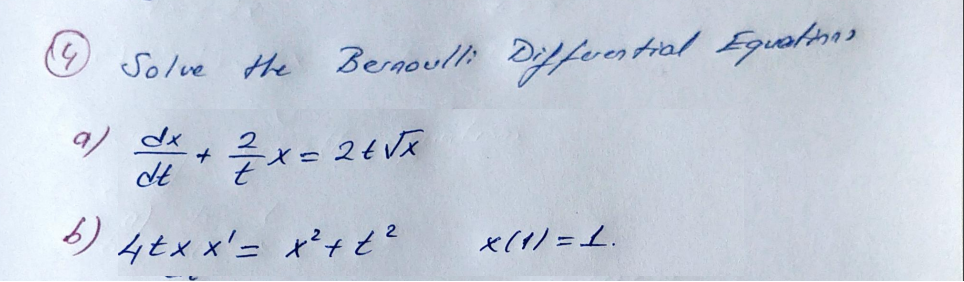 4 Solve the Bernoulli Differential Equations
a) dx/dt + 2/t x = 2t√x
b) 4txx' = x² + t² x(1) = 1.